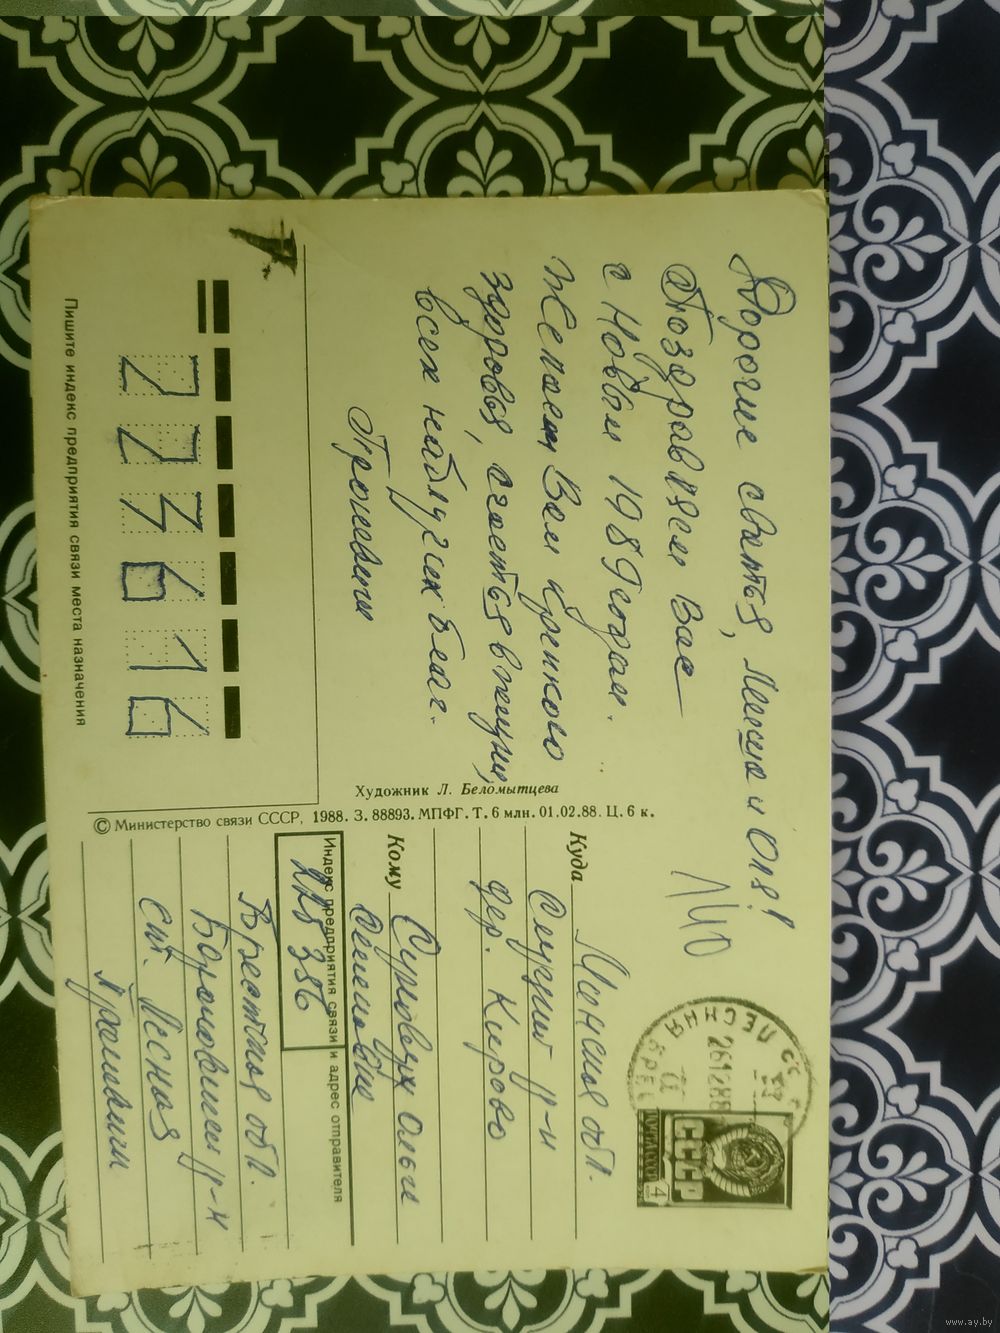 Дорогие сваться, Леша и Оля!
Поздравляем Вас
с Новым 1989 годом.
Желаем Вам крепкого
здоровья, счастья в жизни,
всех наилучших благ.
223616
Пишите индекс предприятия связи места назначения
Художник Л. Беломытцева
© Министерство связи СССР, 1988. З. 88893. МПФГ. Т. 6 млн. 01.02.88. Ц. 6 к.
ЛЕСНАЯ БРЕС
СССР
4
Куда Минская обл.
Слуцкий р-н
дер. Кирово
Кому
Ольге
Индекс предприятия связи и адрес отправителя
225 336
Брестская обл.
Барановичский р-н
ст. Лесная
www.ay.by